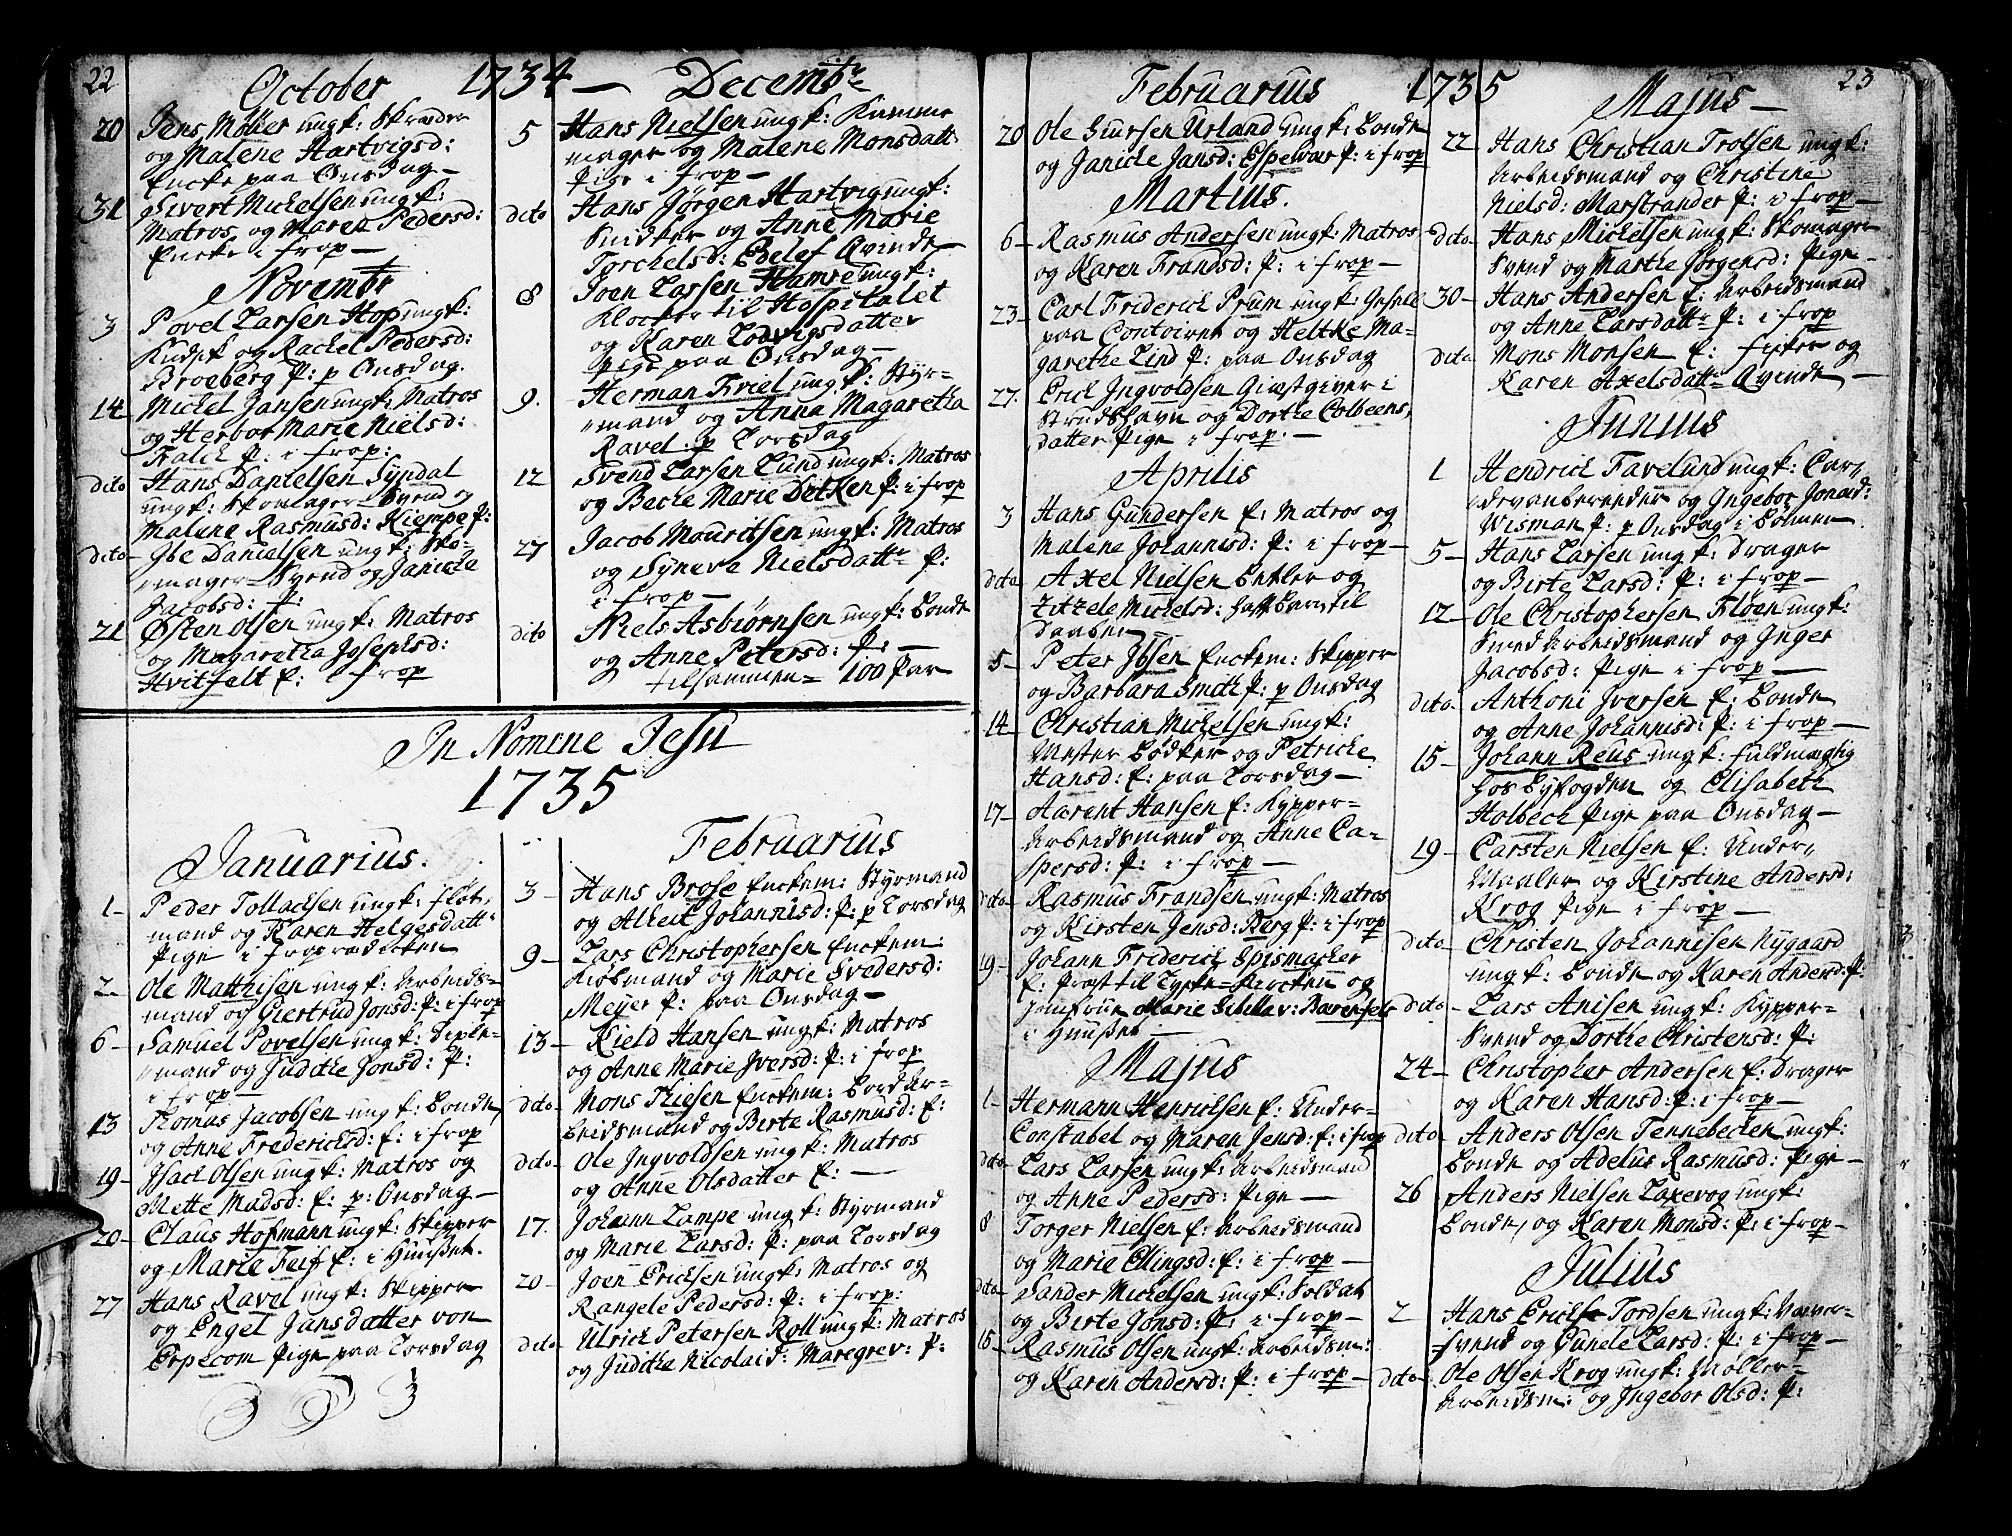 22
October 1734 — Decembr
20 Jens Møller ungk: Skræder
og Malene Hartvigsd:
Encke paa Onsdag —
31 Sivert Michelsen ungk:
Matros og Maren Pedersd:
Encke i frop —
Novembr
3 Povel Larsen Hop ungk:
og Rachel Pedersd:
Broeberg P: p Onsdag.
14 Michel Jansen ungk: Matros
og Herbor Marie Nielsd:
Falck P: i frop:
dito Hans Danielsen Syndal
ungk: Skomager Svend og
Malene Rasmusd: Kiempe P:
dito Ibe Danielsen ungk: Sko-
mager Svend og Janicke
Jacobsd: P:
21 Østen Olsen ungk: Matros
og Magaretha Josephsd:
Hvitfelt E: i frop
5 Hans Nielsen ungk: Kamme
mager og Malene Monsdattr
Pige i frop —
dito Hans Jørgen Hartvig ungk:
Snidker og Anne Marie
Torchelsd: Edelef Qvinde —
8 Joen Lassen Hamre ungk:
Klocker til Hospitalet
og Karen Lodvigsdatter
Pige paa Onsdag —
9. Herman Friel ungk: Styr-
mand og Anna Magaretha
Ravel p Torsdag
12 Svend Larsen Lund ungk: Matros
og Beche Marie Detken P: i frop
27 Jacob Mauritsen ungk: Matros
og Syneva Nielsdattr P:
i frop —
dito Niels Asbiørnsen ungk: Bonde
og Anne Petersd: P: —
tilsammen = 100 Par
In Nomine Jesu
1735
Januarius.
1 — Peder Tollachsen ungk: fløt,
mand og Karen Helgesdattr
Pige i frop
2 — Ole Matthisen ungk: Arbeids-
mand og Giertrud Jonsd: P: i frop
6 — Samuel Povelsen ungk:
mand og Judithe Jonsd: P:
i frop —
13 Thomas Jacobsen ungk: Bonde,
og Anne Frederichsd: E: i frop
19 — Isach Olsen ungk: Matros og
Mette Madsd: E: p: Onsdag —
20 — Claus Hofmann ungk: Skipper
og Marie Feif E: i Huuset.
27 Hans Ravel ungk: Skipper
og Engel Jansdatter von
Erpecom Pige paa Torsdag
Februarius
3 — Hans Brose Enckem: Styrmand
og Alheit Johannisd: P: p Torsdag
9 — Lars Christophersen Enckem:
Kiøbmand og Marie Svedersd:
Meyer P: paa Onsdag —
13 — Kield Hansen ungk: Matros
og Anne Marie Iversd: P: i frop
dito — Mons Thiesen Enckem: Bord Ar-
beidsmand og Birte Rasmusd: E:
dito — Ole Ingvoldsen ungk: Matros
og Anne Olsdatter E: —
17. Johann Lampe ungk: Styrmand
og Marie Larsd: P: paa Torsdag
20 — Joen Erichsen ungk: Matros og
Rangele Pedersd: P: i frop:
dito Ulrich Petersen Roll ungk: Matros
og Judithe Nicolaid: Maregrev: P:
Februarius 1735 Majus — 23
20 Ole Siursen Urland ungk: Bonde
og Janicle Jansd: Espevær P: i frop
Martius.
6 — Rasmus Andersen ungk: Matros
og Karen Frandsd: P: i frop —
23 — Carl Friderich Prum ungk: Gesell
paa Contoiret og Heltke Ma-
garethe Lind P: paa Onsdag
27. Erich Ingvoldsen Giæstgiver i
Strudshavn og Dorthe Colbeens,
datter Pige i frop. —
Aprilis
3 Hans Gundersen E: Matros og
Malene Johannisd: P: i frop —
dito Axel Nielsen Betler og
Zitzele Michelsd: haft Barn til
Daaben
5 — Peter Ibsen Enckem: Skipper
og Barbara Smith P: p Onsdag
14 — Christian Michelsen ungk:
Mester Bødker og Petriche
Hansd: E: paa Torsdag —
17 — Aarent Hansen E: Kypper-
Arbeidsmand og Anne Ca-
spersd: P: i frop —
dito Rasmus Frandsen ungk: Matros
og Kirsten Jensd: Berg P: i frop
19 — Johann Friderich Spismacher
E: Præst til Tyske-Kircken og
Jomfrue Marie Sibilla v: Barensels
i Huuset —
Majus
1 — Hermann Henrichsen E: Under-
Constabel og Maren Jensd: E: i frop
dito Lars Larsen ungk: Arbeidsmand
og Anne Pedersd: Pige —
8 Torger Nielsen E: Arbeidsmand
og Marie Ellingsd: E: i frop —
dito Sander Michelsen ungk: Soldat
og Birte Jonsd: P: i frop —
15 — Rasmus Olsen ungk: Arbeidsm:
og Karen Andersd: P: i frop —
22 — Hans Christian Trolsen ungk:
Arbeidsmand og Christine
Nielsd: Marstrander P: i frop —
dito — Hans Michelsen ungk: Skomager
Svend og Marthe Jørgensd: Pige —
30 — Hans Andersen E: Arbeidsmand
og Anne Larsdattr P: i frop
dito Mons Monsen E: Fisker og
Karen Axelsdattr Qvinde —
Junius
1 Hendrich Favelund ungk: Cor,
devanbereeder og Ingebor Jonasd:
Wisman P: p Onsdag i Bønnen
5 — Hans Larsen ungk: Drager
og Birte Larsd: P: i frop —
12 — Ole Christophersen Fløen ungk:
Smed Arbeidsmand og Inger
Jacobsd: Pige i frop —
dito — Anthoni Iversen E: Bonde
og Anne Johannisd: P: i frop —
15 — Johann Reus ungk: fuldmægtig
hos Byfogden og Elisabeth
Holbech Pige paa Onsdag —
19 — Carsten Nielsen E: Under,
Maaler og Kirstine Andersd:
Krog Pige i frop —
dito — Christen Johannisen Nygaard
ungk: Bonde og Karen Andersd: P:
dito — Lars Anisen ungk: Kypper-
Svend og Dorthe Christensd: P:
24 — Christopher Andersen E: Drager
og Karen Hansd: P: i frop —
dito — Anders Olsen Tennebecken ungk:
Bonde og Adelus Rasmusd: Pige —
26 Anders Nielsen Laxevog ungk:
Bonde, og Karen Monsd: P: i frop —
Julius
2 Hans Erichs Tordsen ungk: Væver-
svend og Gunele Larsd: P: i frop —
dito — Ole Olsen Krog ungk: Møller-
Arbeidsm: og Ingebor Olsd: P: